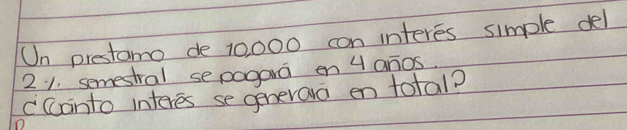 Un prestamo de 10,000 con interés simple del
2%. semestral se pagará en 4 años.
¿Cuánto interés se generará en total?